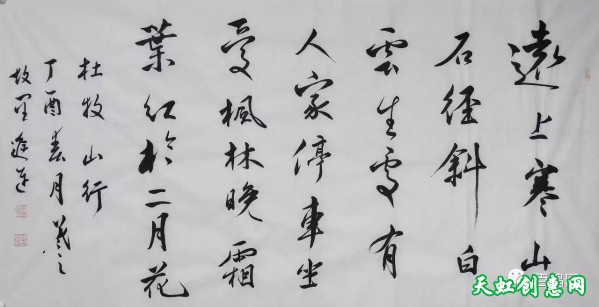 遠上寒山
石徑斜白
雲生處有
人家停車坐
愛楓林晚霜
葉紅於二月花
杜牧山行
丁酉春月羲之
故里
天虹创惠网